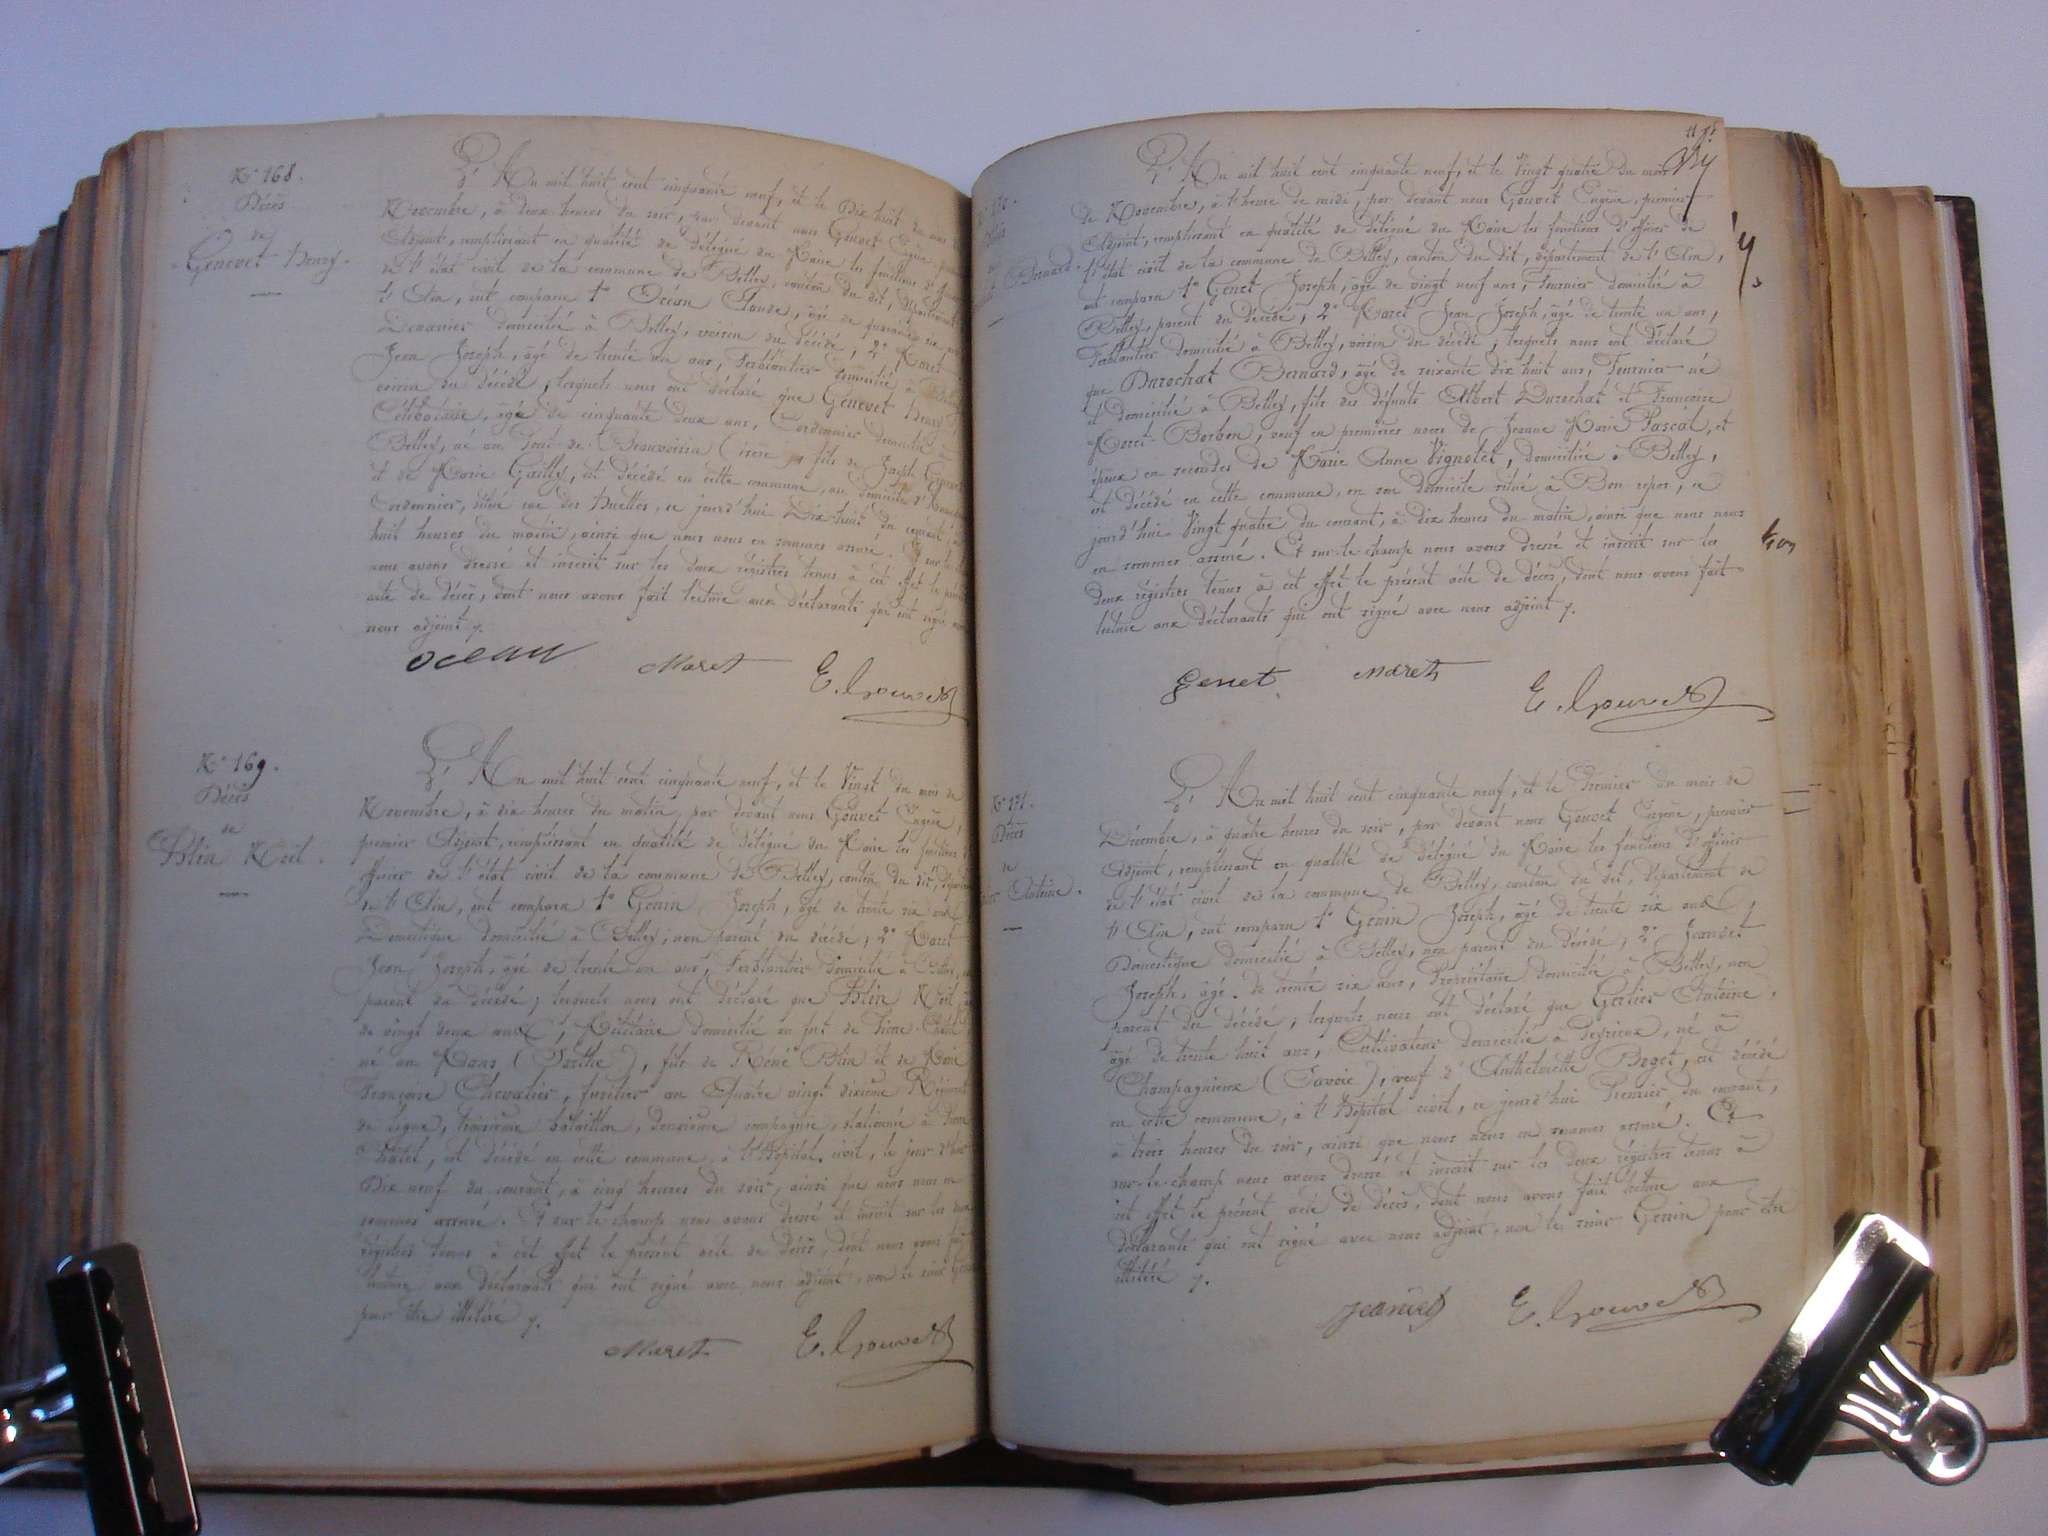 N° 168.
Décès
de
Genevet Henry.
L'An mil huit cent cinquante neuf, et le Dix huit du mois de
Novembre, à deux heures du soir, par devant nous Gouvet Eugène, premier
Adjoint, remplissant en qualité de délégué du Maire les fonctions d'officier
de l'état civil de la commune de Belley, canton du dit, département de
l'Ain, ont comparu 1° Océan Claude, âgé de quarante six ans,
domicilié à Belley, voisin du décédé, 2° Maret
Jean Joseph, âgé de trente un ans, Ferblantier domicilié à Belley,
voisin du décédé, lesquels nous ont déclaré que Genevet Henry,
Célibataire, âgé de cinquante deux ans, Cordonnier domicilié à
Belley, né au Pont-de-Beauvoisin (Isère), fils de Joseph Genevet
et de Marie Gailley, est décédé en cette commune, au domicile
Cordonnier, situé rue des Huettes, ce jourd'hui Dix huit du courant, à
huit heures du matin, ainsi que nous nous en sommes assuré. Et sur le champ
nous avons dressé et inscrit sur les deux régistres tenus à cet effet le présent
acte de décès, dont nous avons fait lecture aux déclarants qui ont signé avec
nous adjoint.
Océan Maret E. Gouvet
N° 169.
Décès
de
Blin Noël.
L'An mil huit cent cinquante neuf, et le Vingt du mois de
Novembre, à dix heures du matin, par devant nous Gouvet Eugène,
premier Adjoint, remplissant en qualité de délégué du Maire les fonctions d'
officier de l'état civil de la commune de Belley, canton du dit, département
de l'Ain, ont comparu 1° Genin Joseph, âgé de trente six ans,
Domestique domicilié à Belley, non parent du décédé; 2° Maret
Jean Joseph, âgé de trente un ans, Ferblantier domicilié à Belley, non
parent du décédé; lesquels nous ont déclaré que Blin Noël, âgé
de vingt deux ans, Militaire domicilié au fort de Pierre-Châtel,
né au Mans (Sarthe), fils de Réné Blin et de Marie
Françoise Chevalier, fusilier au Quatre vingt dixième Régiment
de ligne, troisième bataillon, deuxième compagnie, stationnée à Pierre
Châtel, est décédé en cette commune, à l'Hôpital civil, le jour d'hier
Dix neuf du courant, à cinq heures du soir, ainsi que nous nous en
sommes assuré. Et sur le champ nous avons dressé et inscrit sur les deux
régistres tenus à cet effet le présent acte de décès, dont nous avons fait
lecture aux déclarants qui ont signé avec nous adjoint, non le sieur Genin
pour être illitéré.
Maret E. Gouvet
Bernard.
L'An mil huit cent cinquante neuf, et le Vingt quatre du mois
de Novembre, à l'heure de midi, par devant nous Gouvet Eugène, premier
Adjoint, remplissant en qualité de délégué du Maire les fonctions d'officier de
l'état civil de la commune de Belley, canton du dit, département de l'Ain,
ont comparu 1° Genet Joseph, âgé de vingt neuf ans, Fournier domicilié à
Belley, parent du décédé, 2° Maret Jean Joseph, âgé de trente un ans,
Ferblantier domicilié à Belley, voisin du décédé; lesquels nous ont déclaré
que Durochat Bernard, âgé de soixante dix huit ans, Fournier né
et domicilié à Belley, fils des défunts Albert Durochat et Françoise
Moret-Borbon, veuf en premières noces de Jeanne Marie Pascal, et
époux en secondes de Marie Anne Vignolet, domiciliée à Belley,
est décédé en cette commune, en son domicile situé à Bon repos, ce
jourd'hui Vingt quatre du courant, à dix heures du matin, ainsi que nous nous
en sommes assuré. Et sur-le-champ nous avons dressé et inscrit sur les
deux régistres tenus à cet effet le présent acte de décès, dont nous avons fait
lecture aux déclarants qui ont signé avec nous adjoint.
Genet Maret E. Gouvet
N° 171.
Décès
de
Antoine.
L'An mil huit cent cinquante neuf, et le Premier du mois de
Décembre, à quatre heures du soir, par devant nous Gouvet Eugène, premier
Adjoint, remplissant en qualité de délégué du Maire les fonctions d'officier
de l'état civil de la commune de Belley, canton du dit, département de
l'Ain, ont comparu 1° Genin Joseph, âgé de trente six ans,
Domestique domicilié à Belley, non parent du décédé; 2° Jeandet
Joseph, âgé de trente six ans, Propriétaire domicilié à Belley, non
parent du décédé; lesquels nous ont déclaré que Gerlier Antoine,
âgé de trente huit ans, Cultivateur domicilié à Peyrieux, né à
Champagneux (Savoie), veuf d'Anthelmette Boget, est décédé
en cette commune, à l'Hôpital civil, ce jourd'hui Premier du courant,
à trois heures du soir, ainsi que nous nous en sommes assuré. Et
sur-le-champ nous avons dressé et inscrit sur les deux régistres tenus à
cet effet le présent acte de décès, dont nous avons fait lecture aux
déclarants qui ont signé avec nous adjoint, non le sieur Genin pour être
illitéré.
E. Gouvet